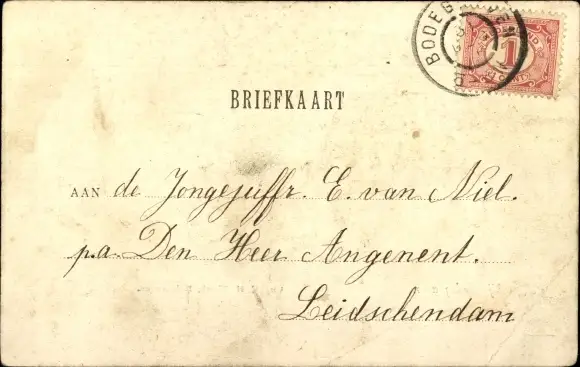 BODEG
1
CENT
BRIEFKAART
AAN de Jongejuffr. E. van Niel.
p.a. Den Heer Angenent.
Leidschendam